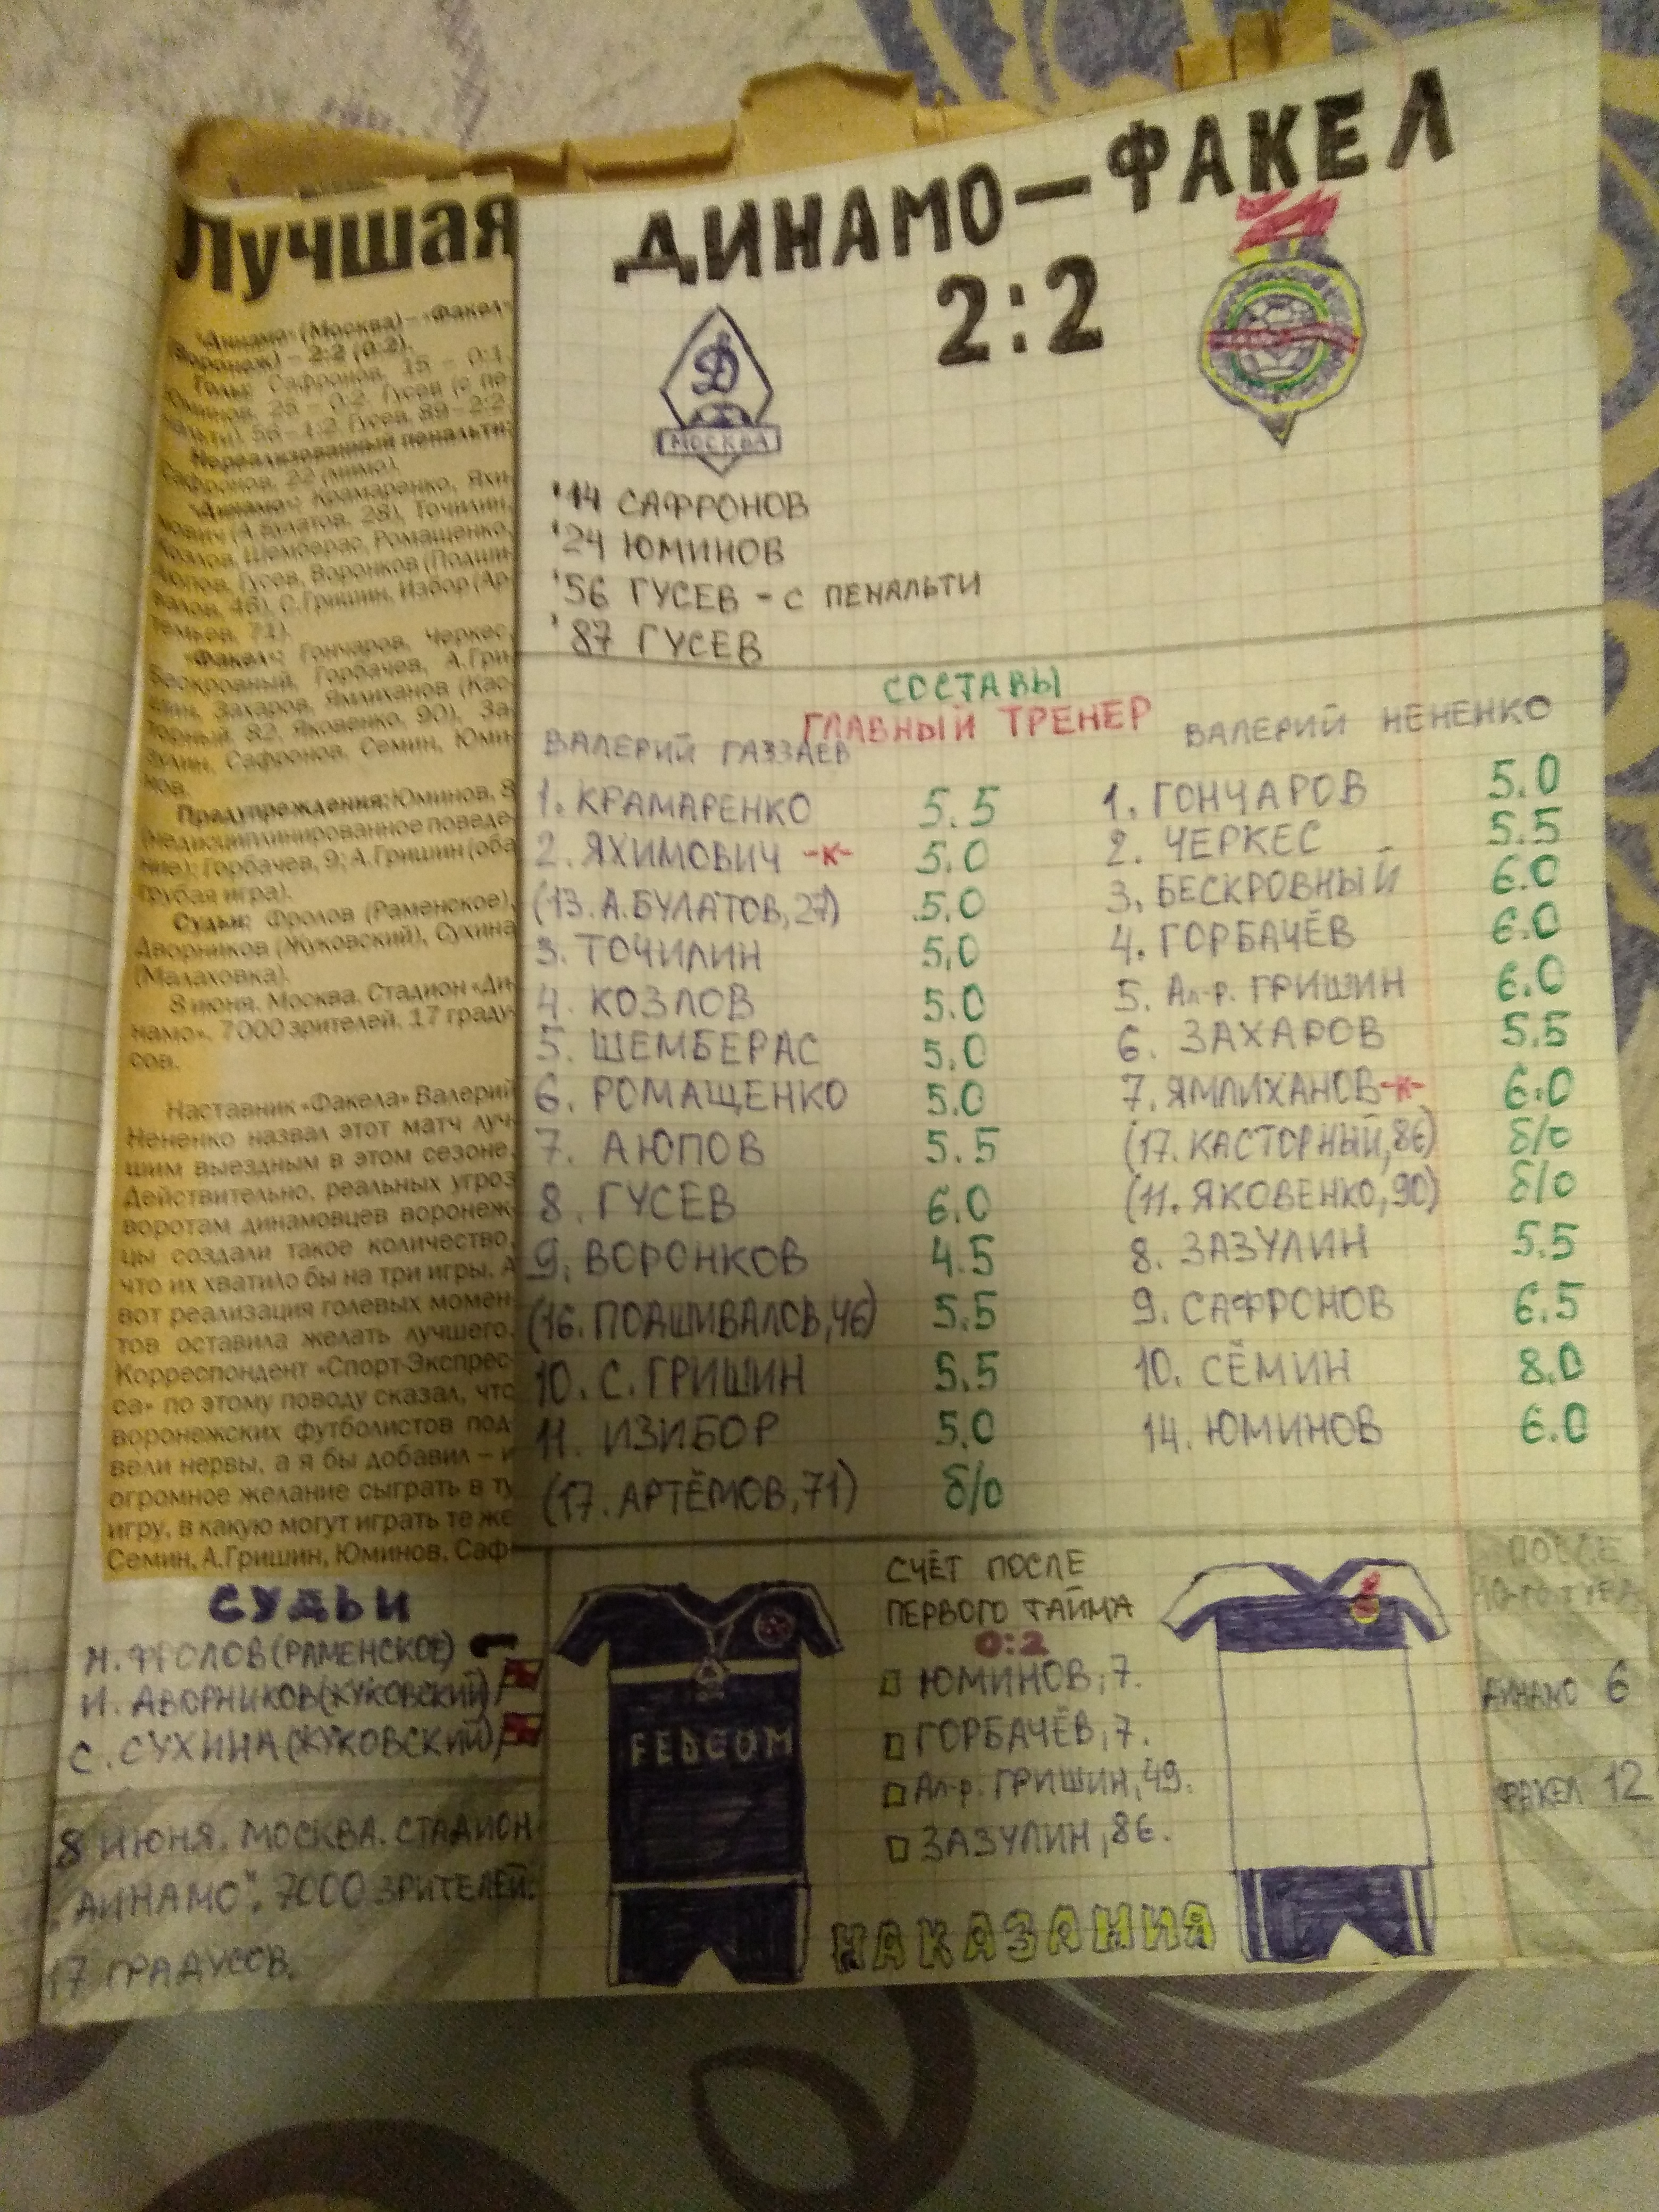 Лучшая
"Динамо" (Москва) – «Факел»
(Воронеж) – 2:2 (0:2).
Голы: Сафронов, 15 – 0:1.
Юминов, 25 – 0:2. Гусев (с пе-
нальти), 56 – 1:2. Гусев, 89 – 2:2.
Нереализованный пенальти:
Сафронов, 22 (мимо).
«Динамо»: Крамаренко, Яхи-
мович (А.Булатов, 28), Точилин,
Козлов, Шемберас, Ромащенко,
Аюпов, Гусев, Воронков (Подши-
валов, 46), С.Гришин, Избор (Ар-
темьев, 71).
«Факел»: Гончаров, Черкес,
Бескровный, Горбачев, А.Гри-
шин, Захаров, Ямлиханов (Кас-
торный, 82, Яковенко, 90), За-
зулин, Сафронов, Семин, Юми-
нов.
Предупреждения: Юминов, 8
(недисциплинированное поведе-
ние); Горбачев, 9; А.Гришин (оба
грубая игра).
Судьи: Фролов (Раменское),
Дворников (Жуковский), Сухина
(Малаховка).
8 июня. Москва. Стадион «Ди-
намо». 7000 зрителей. 17 граду-
сов.
Наставник «Факела» Валерий
Нененко назвал этот матч луч-
шим выездным в этом сезоне.
Действительно, реальных угроз
воротам динамовцев воронеж-
цы создали такое количество,
что их хватило бы на три игры. А
вот реализация голевых момен-
тов оставила желать лучшего.
Корреспондент «Спорт-Экспрес-
са» по этому поводу сказал, что
воронежских футболистов под-
вели нервы, а я бы добавил – и
огромное желание сыграть в ту
игру, в какую могут играть те же
Семин, А.Гришин, Юминов, Саф-
ДИНАМО – ФАКЕЛ
2:2
Д
МОСКВА
'14 САФРОНОВ
'24 ЮМИНОВ
'56 ГУСЕВ – С ПЕНАЛЬТИ
'87 ГУСЕВ
СОСТАВЫ
ГЛАВНЫЙ ТРЕНЕР
ВАЛЕРИЙ ГАЗЗАЕВ
1. КРАМАРЕНКО 5.5
2. ЯХИМОВИЧ -К- 5.0
(13. А.БУЛАТОВ, 27) 5.0
3. ТОЧИЛИН 5.0
4. КОЗЛОВ 5.0
5. ШЕМБЕРАС 5.0
6. РОМАЩЕНКО 5.0
7. АЮПОВ 5.5
8. ГУСЕВ 6.0
9. ВОРОНКОВ 4.5
(16. ПОДШИВАЛОВ, 46) 5.5
10. С. ГРИШИН 5.5
11. ИЗИБОР 5.0
(17. АРТЁМОВ, 71) б/о
ВАЛЕРИЙ НЕНЕНКО
1. ГОНЧАРОВ 5.0
2. ЧЕРКЕС 5.5
3. БЕСКРОВНЫЙ 6.0
4. ГОРБАЧЁВ 6.0
5. Ал-р. ГРИШИН 6.0
6. ЗАХАРОВ 5.5
7. ЯМЛИХАНОВ -К- 6.0
(17. КАСТОРНЫЙ, 86) б/о
(11. ЯКОВЕНКО, 90) б/о
8. ЗАЗУЛИН 5.5
9. САФРОНОВ 6.5
10. СЁМИН 8.0
14. ЮМИНОВ 6.0
СУДЬИ
Н. ФРОЛОВ (РАМЕНСКОЕ)
И. ДВОРНИКОВ (ЖУКОВСКИЙ)
С. СУХИНА (ЖУКОВСКИЙ)
8 ИЮНЯ. МОСКВА. СТАДИОН
„ДИНАМО". 7000 ЗРИТЕЛЕЙ.
17 ГРАДУСОВ.
FEDCOM
СЧЁТ ПОСЛЕ
ПЕРВОГО ТАЙМА
0:2
ЮМИНОВ, 7.
ГОРБАЧЁВ, 7.
Ал-р. ГРИШИН, 49.
ЗАЗУЛИН, 86.
НАКАЗАНИЯ
ПОСЛЕ
10-ГО ТУРА
ДИНАМО 6
ФАКЕЛ 12